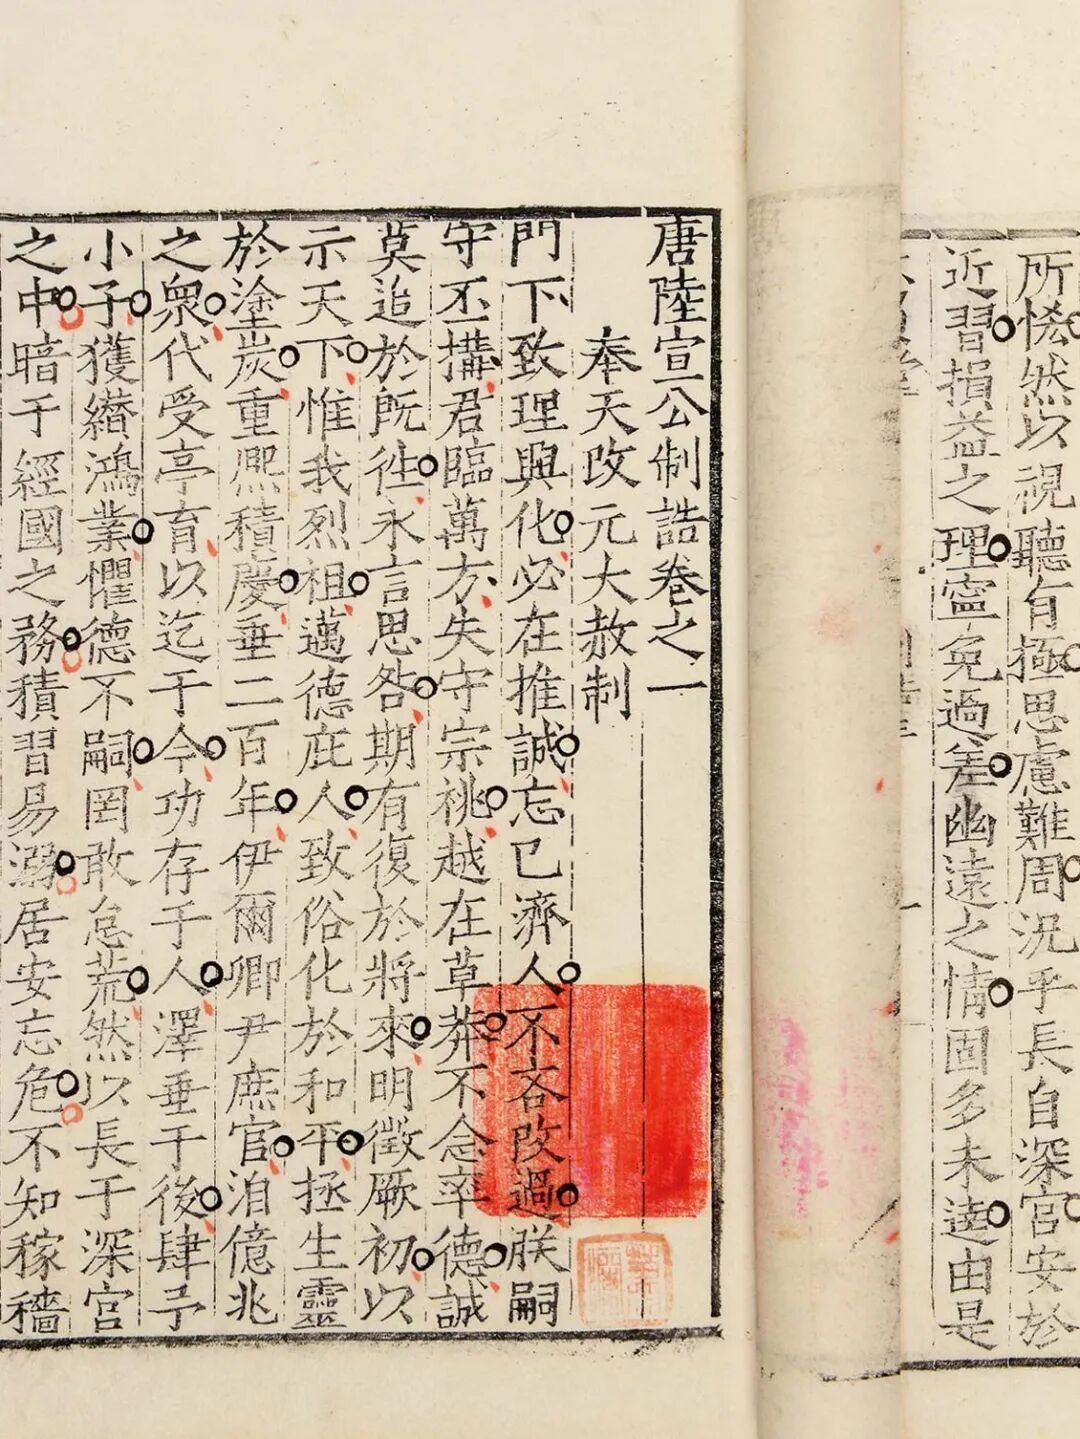 唐陸宣公制誥卷之一
奉天改元大赦制
門下致理興化必在推誠忘已濟人不吝改過朕嗣
守丕搆君臨萬方失守宗祧越在草莽不念率德誠
莫追於既徃永言思咎期有復於將來明徵厥初以
示天下惟我烈祖邁德庇人致俗化於和平拯生靈
於塗炭重熙積慶垂二百年伊爾卿尹庶官洎億兆
之衆代受亭育以迄于今功存于人澤垂于後肆予
小子獲纉鴻業懼德不嗣罔敢怠荒然以長于深宮
之中暗于經國之務積習易溺居安忘危不知稼穡
所悕然以視聽有極思慮難周況乎長自深宮安於
近習損益之理寧免過差幽遠之情固多未達由是